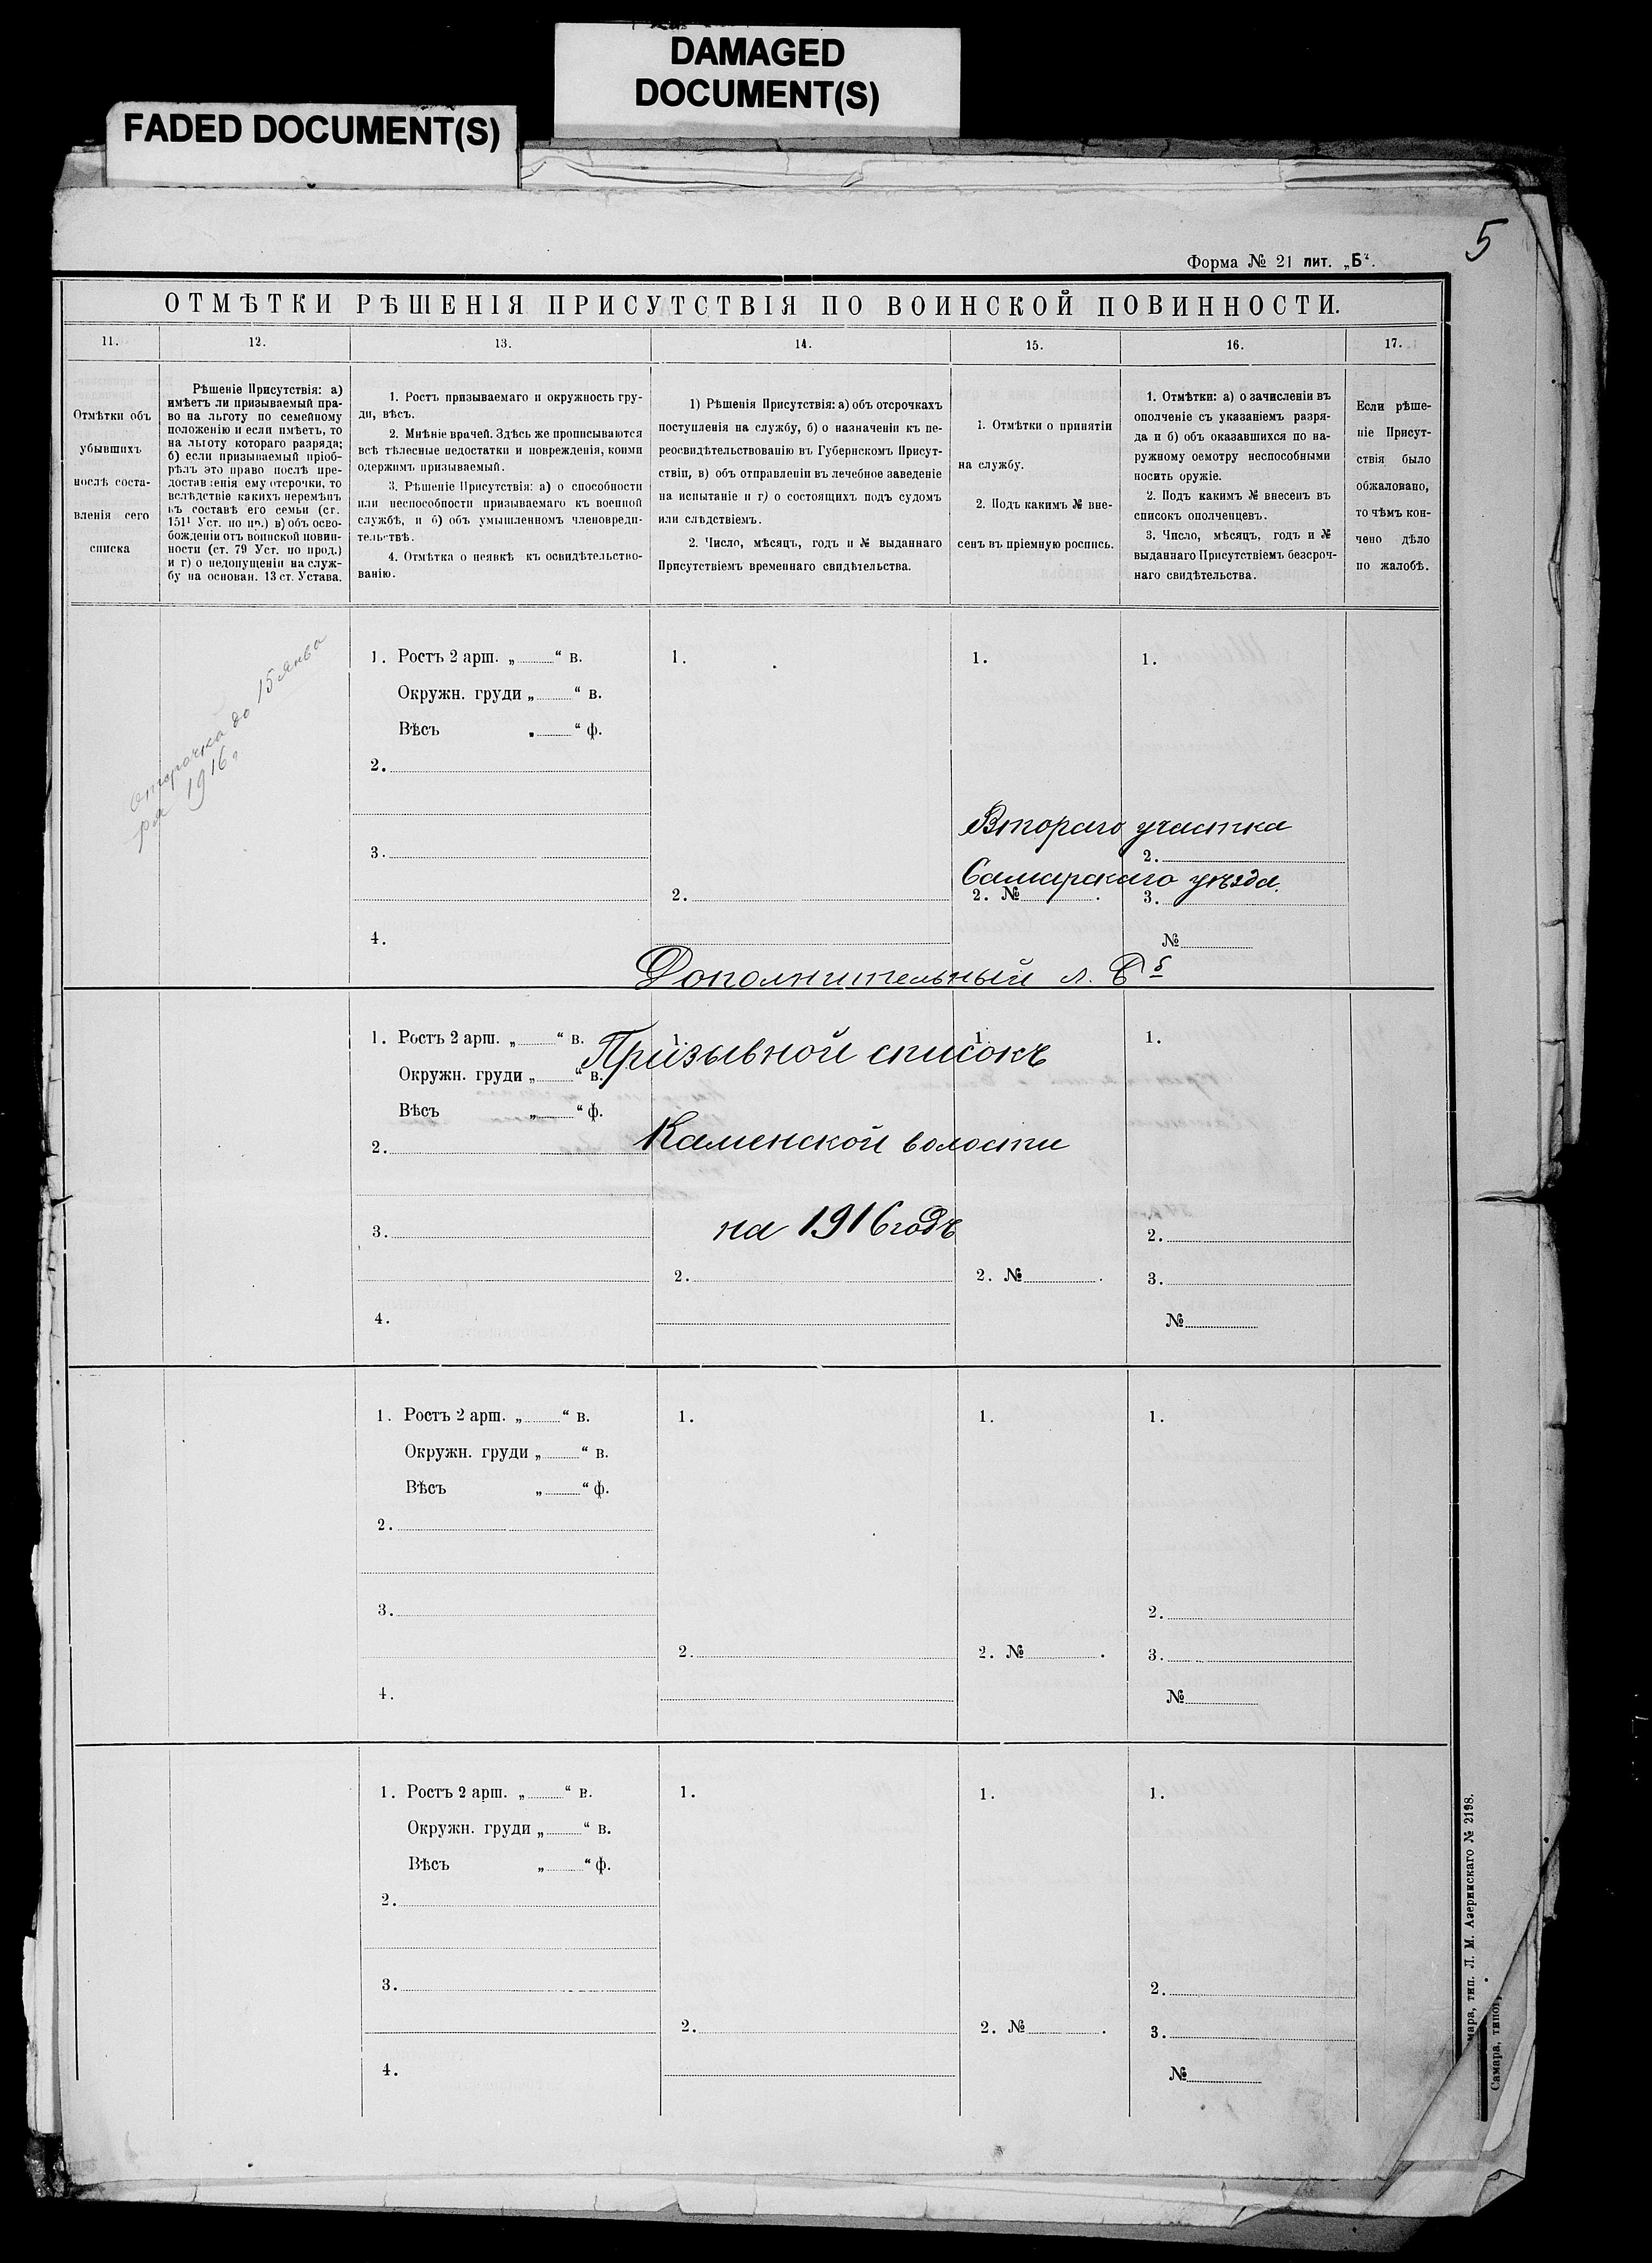 DAMAGED
DOCUMENT(S)
FADED DOCUMENT(S)
5
Форма № 21 лит. „Б“.
ОТМѢТКИ РѢШЕНІЯ ПРИСУТСТВІЯ ПО ВОИНСКОЙ ПОВИННОСТИ.
11. 12. 13. 14. 15. 16. 17.
Отмѣтки объ
убывшихъ
послѣ соста-
вленія сего
списка
Рѣшеніе Присутствія: а)
имѣетъ ли призываемый пра-
во на льготу по семейному
положенію и если имѣетъ, то
на льготу котораго разряда;
б) если призываемый пріоб-
рѣлъ это право послѣ пре-
доставленія ему отсрочки, то
вслѣдствіе какихъ перемѣнъ
въ составѣ его семьи (ст.
151¹ Уст. по пр.) в) объ осво-
божденіи отъ воинской повин-
ности (ст. 79 Уст. по прод.)
и г) о недопущеніи на служ-
бу на основан. 13 ст. Устава.
1. Ростъ призываемаго и окружность гру-
ди, вѣсъ.
2. Мнѣніе врачей. Здѣсь же прописываются
всѣ тѣлесные недостатки и поврежденія, коими
одержимъ призываемый.
3. Рѣшеніе Присутствія: а) о способности
или неспособности призываемаго къ военной
службѣ, и б) объ умышленномъ членовреди-
тельствѣ.
4. Отмѣтка о неявкѣ къ освидѣтельство-
ванію.
1) Рѣшенія Присутствія: а) объ отсрочкахъ
поступленія на службу, б) о назначеніи къ пе-
реосвидѣтельствованію въ Губернскомъ Присут-
ствіи, в) объ отправленіи въ лечебное заведеніе
на испытаніе и г) о состоящихъ подъ судомъ
или слѣдствіемъ.
2. Число, мѣсяцъ, годъ и № выданнаго
Присутствіемъ временнаго свидѣтельства.
1. Отмѣтки о принятіи
на службу.
2. Подъ какимъ № вне-
сенъ въ пріемную роспись.
1. Отмѣтки: а) о зачисленіи въ
ополченіе съ указаніемъ разря-
да и б) объ оказавшихся по на-
ружному осмотру неспособными
носить оружіе.
2. Подъ какимъ № внесенъ въ
списокъ ополченцевъ.
3. Число, мѣсяцъ, годъ и №
выданнаго Присутствіемъ безсроч-
наго свидѣтельства.
Если рѣше-
ніе Присут-
ствія было
обжаловано,
то чѣмъ кон-
чено дѣло
по жалобѣ.
отсрочка до 15 янва
ря 1916 г
1. Ростъ 2 арш. „ “ в. 1. 1. 1.
Окружн. груди „ “ в.
Вѣсъ „ “ ф.
2.
Втораго участка
3. 2.
Самарскаго уѣзда.
2. 2. № . 3.
4. №
Дополнительный л. Б
Б
1. Ростъ 2 арш. „ “ в. 1. 1. 1.
Призывной списокъ
Окружн. груди „ “ в.
Вѣсъ „ “ ф.
Каменской волости
2.
на 1916 годъ
3. 2.
2. 2. № . 3.
4. №
1. Ростъ 2 арш. „ “ в. 1. 1. 1.
Окружн. груди „ “ в.
Вѣсъ „ “ ф.
2.
3. 2.
2. 2. № . 3.
4. №
1. Ростъ 2 арш. „ “ в. 1. 1. 1.
Окружн. груди „ “ в.
Вѣсъ „ “ ф.
2.
3. 2.
2. 2. № . 3.
4. №
мара, тип. Л. М. Азеринскаго № 2198.
Самара, типог